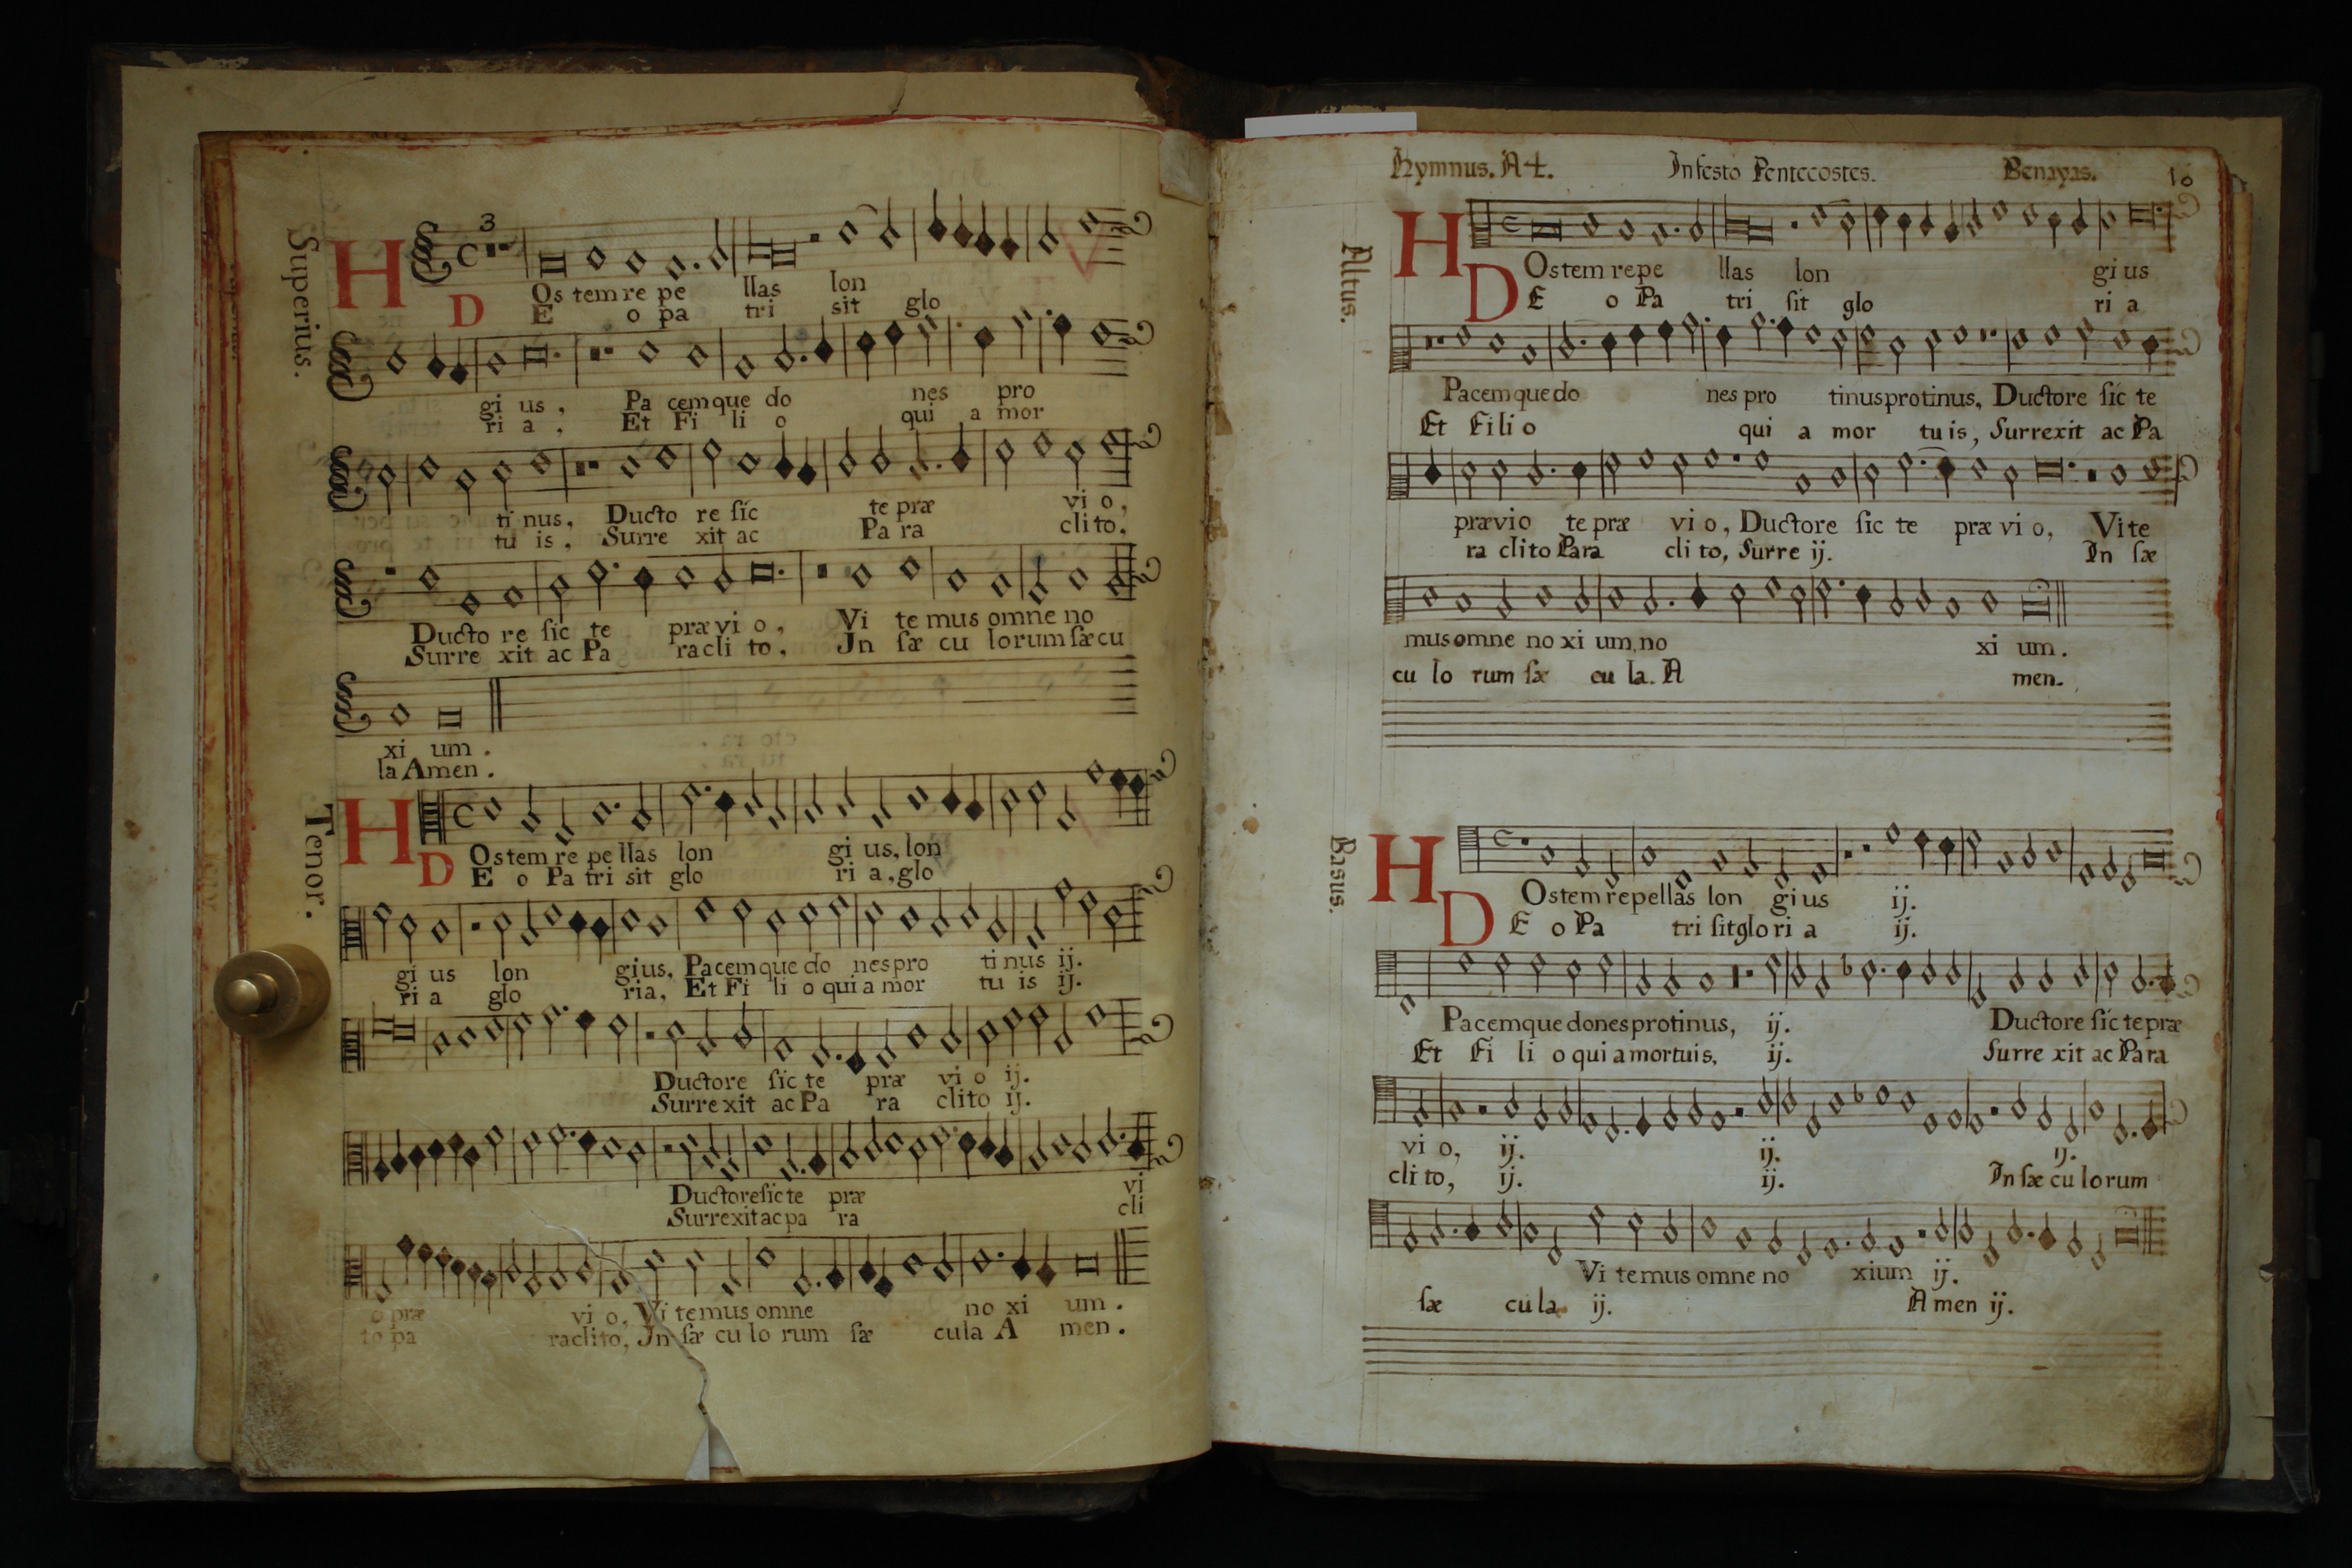 Superius.
3
H Os tem re pe llas lon
D E o pa tri sit glo
gi us, Pa cem que do nes pro
ri a, Et Fi li o qui a mor
ti nus, Ducto re sic te præ vi o,
tu is, Surre xit ac Pa ra cli to,
Ducto re sic te præ vi o, Vi te mus omne no
Surre xit ac Pa ra cli to, Jn sæ cu lo rum sæ cu
xi um.
la Amen.
Tenor.
H Ostem re pe llas lon gi us, lon
D E o Pa tri sit glo ri a, glo
gi us lon gius, Pacem que do nes pro ti nus ij.
ri a glo ria, Et Fi li o qui a mor tu is ij.
Ductore sic te præ vi o ij.
Surrexit ac Pa ra clito ij.
Ductore sic te præ vi
Surrexit ac pa ra cli
o præ vi o, Vi temus omne no xi um.
to pa raclito, Jn sæ cu lo rum sæ cula A men.
Hymnus. A 4. In festo Pentecostes. Benayas. 10
Altus.
H Ostem repe llas lon gi us
D E o Pa tri sit glo ri a
Pacem que do nes pro tinus protinus, Ductore sic te
Et Fili o qui a mor tu is, Surrexit ac Pa
prævio te præ vi o, Ductore sic te præ vi o, Vite
ra clito Para cli to, Surre ij. In sæ
mus omne no xi um, no xi um.
cu lo rum sæ cu la. A men.
Basus.
H Ostem repellas lon gi us ij.
D E o Pa tri sit glo ri a ij.
Pacem que dones protinus, ij. Ductore sic te præ
Et Fi li o qui a mortuis, ij. Surre xit ac Para
vi o, ij. ij. ij.
cli to, ij. ij. In sæ cu lo rum
Vi temus omne no xium ij.
sæ cula ij. A men ij.